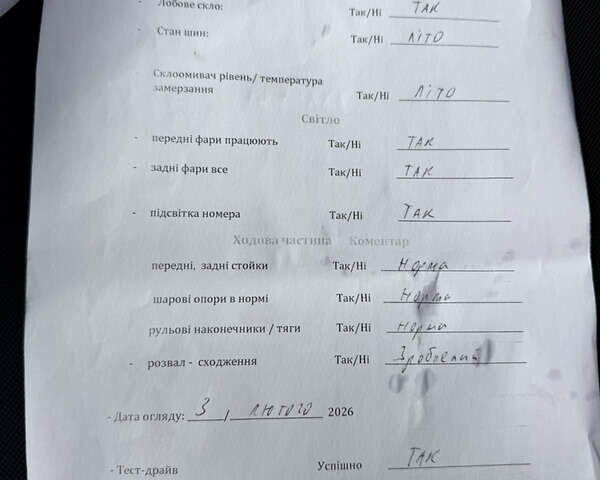 - Лобове скло: Так/Ні ТАК
- Стан шин: Так/Ні ЛІТО
Склоомивач рівень/ температура
замерзання Так/Ні ЛІТО
Світло
- передні фари працюють Так/Ні ТАК
- задні фари все Так/Ні ТАК
- підсвітка номера Так/Ні ТАК
Ходова частина Коментар
передні, задні стойки Так/Ні Норма
шарові опори в нормі Так/Ні Норма
рульові наконечники / тяги Так/Ні Норма
- розвал - сходження Так/Ні Зроблений
- Дата огляду: 3 / ЛЮТОГО 2026
- Тест-драйв Успішно ТАК